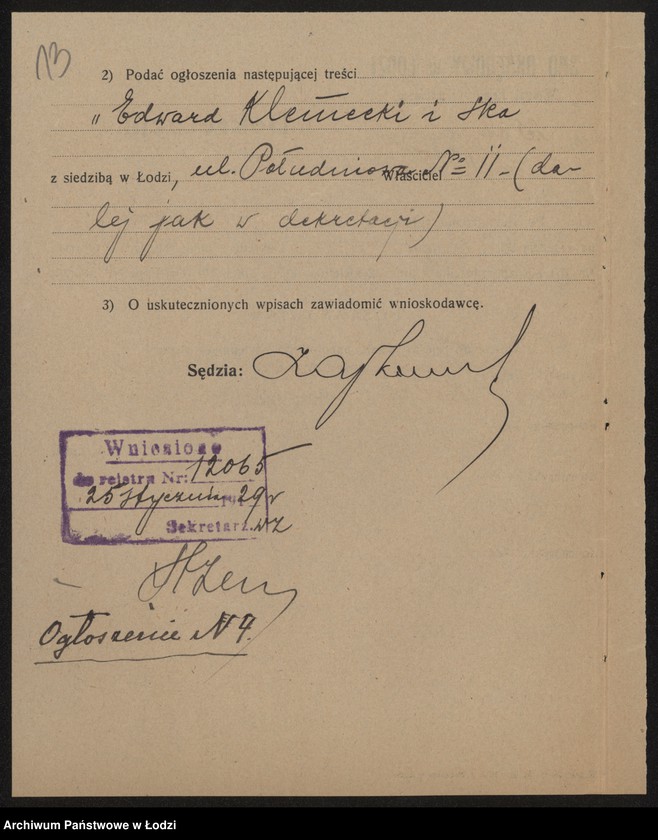 13
2) Podać ogłoszenia następującej treści
„Edward Klemecki i Ska
z siedzibą w Łodzi, ul. Południowa Właściciel № 11 - (da-
lej jak w dekretacji)
3) O uskutecznionych wpisach zawiadomić wnioskodawcę.
Sędzia:
Wniesiono
do rejstru Nr: 12065
25 stycznia 1929 r
Sekretarz wz
Ogłoszenie N 7.
Archiwum Państwowe w Łodzi